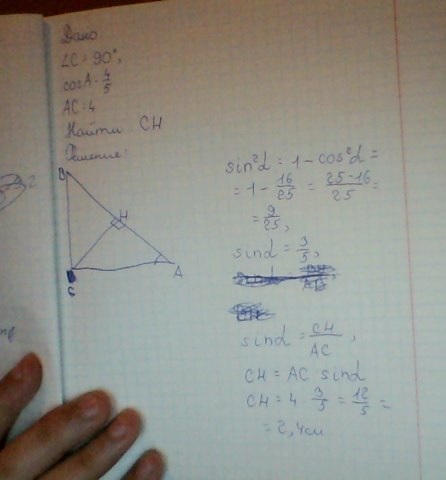 Дано
∠C = 90°,
cosA = 4/5
AC = 4
Найти CH
Решение:
B
H
A
C
sin²α = 1 - cos²α =
= 1 - 16/25 = 25-16/25 =
= 9/25,
sinα = 3/5,
sinα = CH/AC,
CH = AC sinα
CH = 4 · 3/5 = 12/5 =
= 2,4см